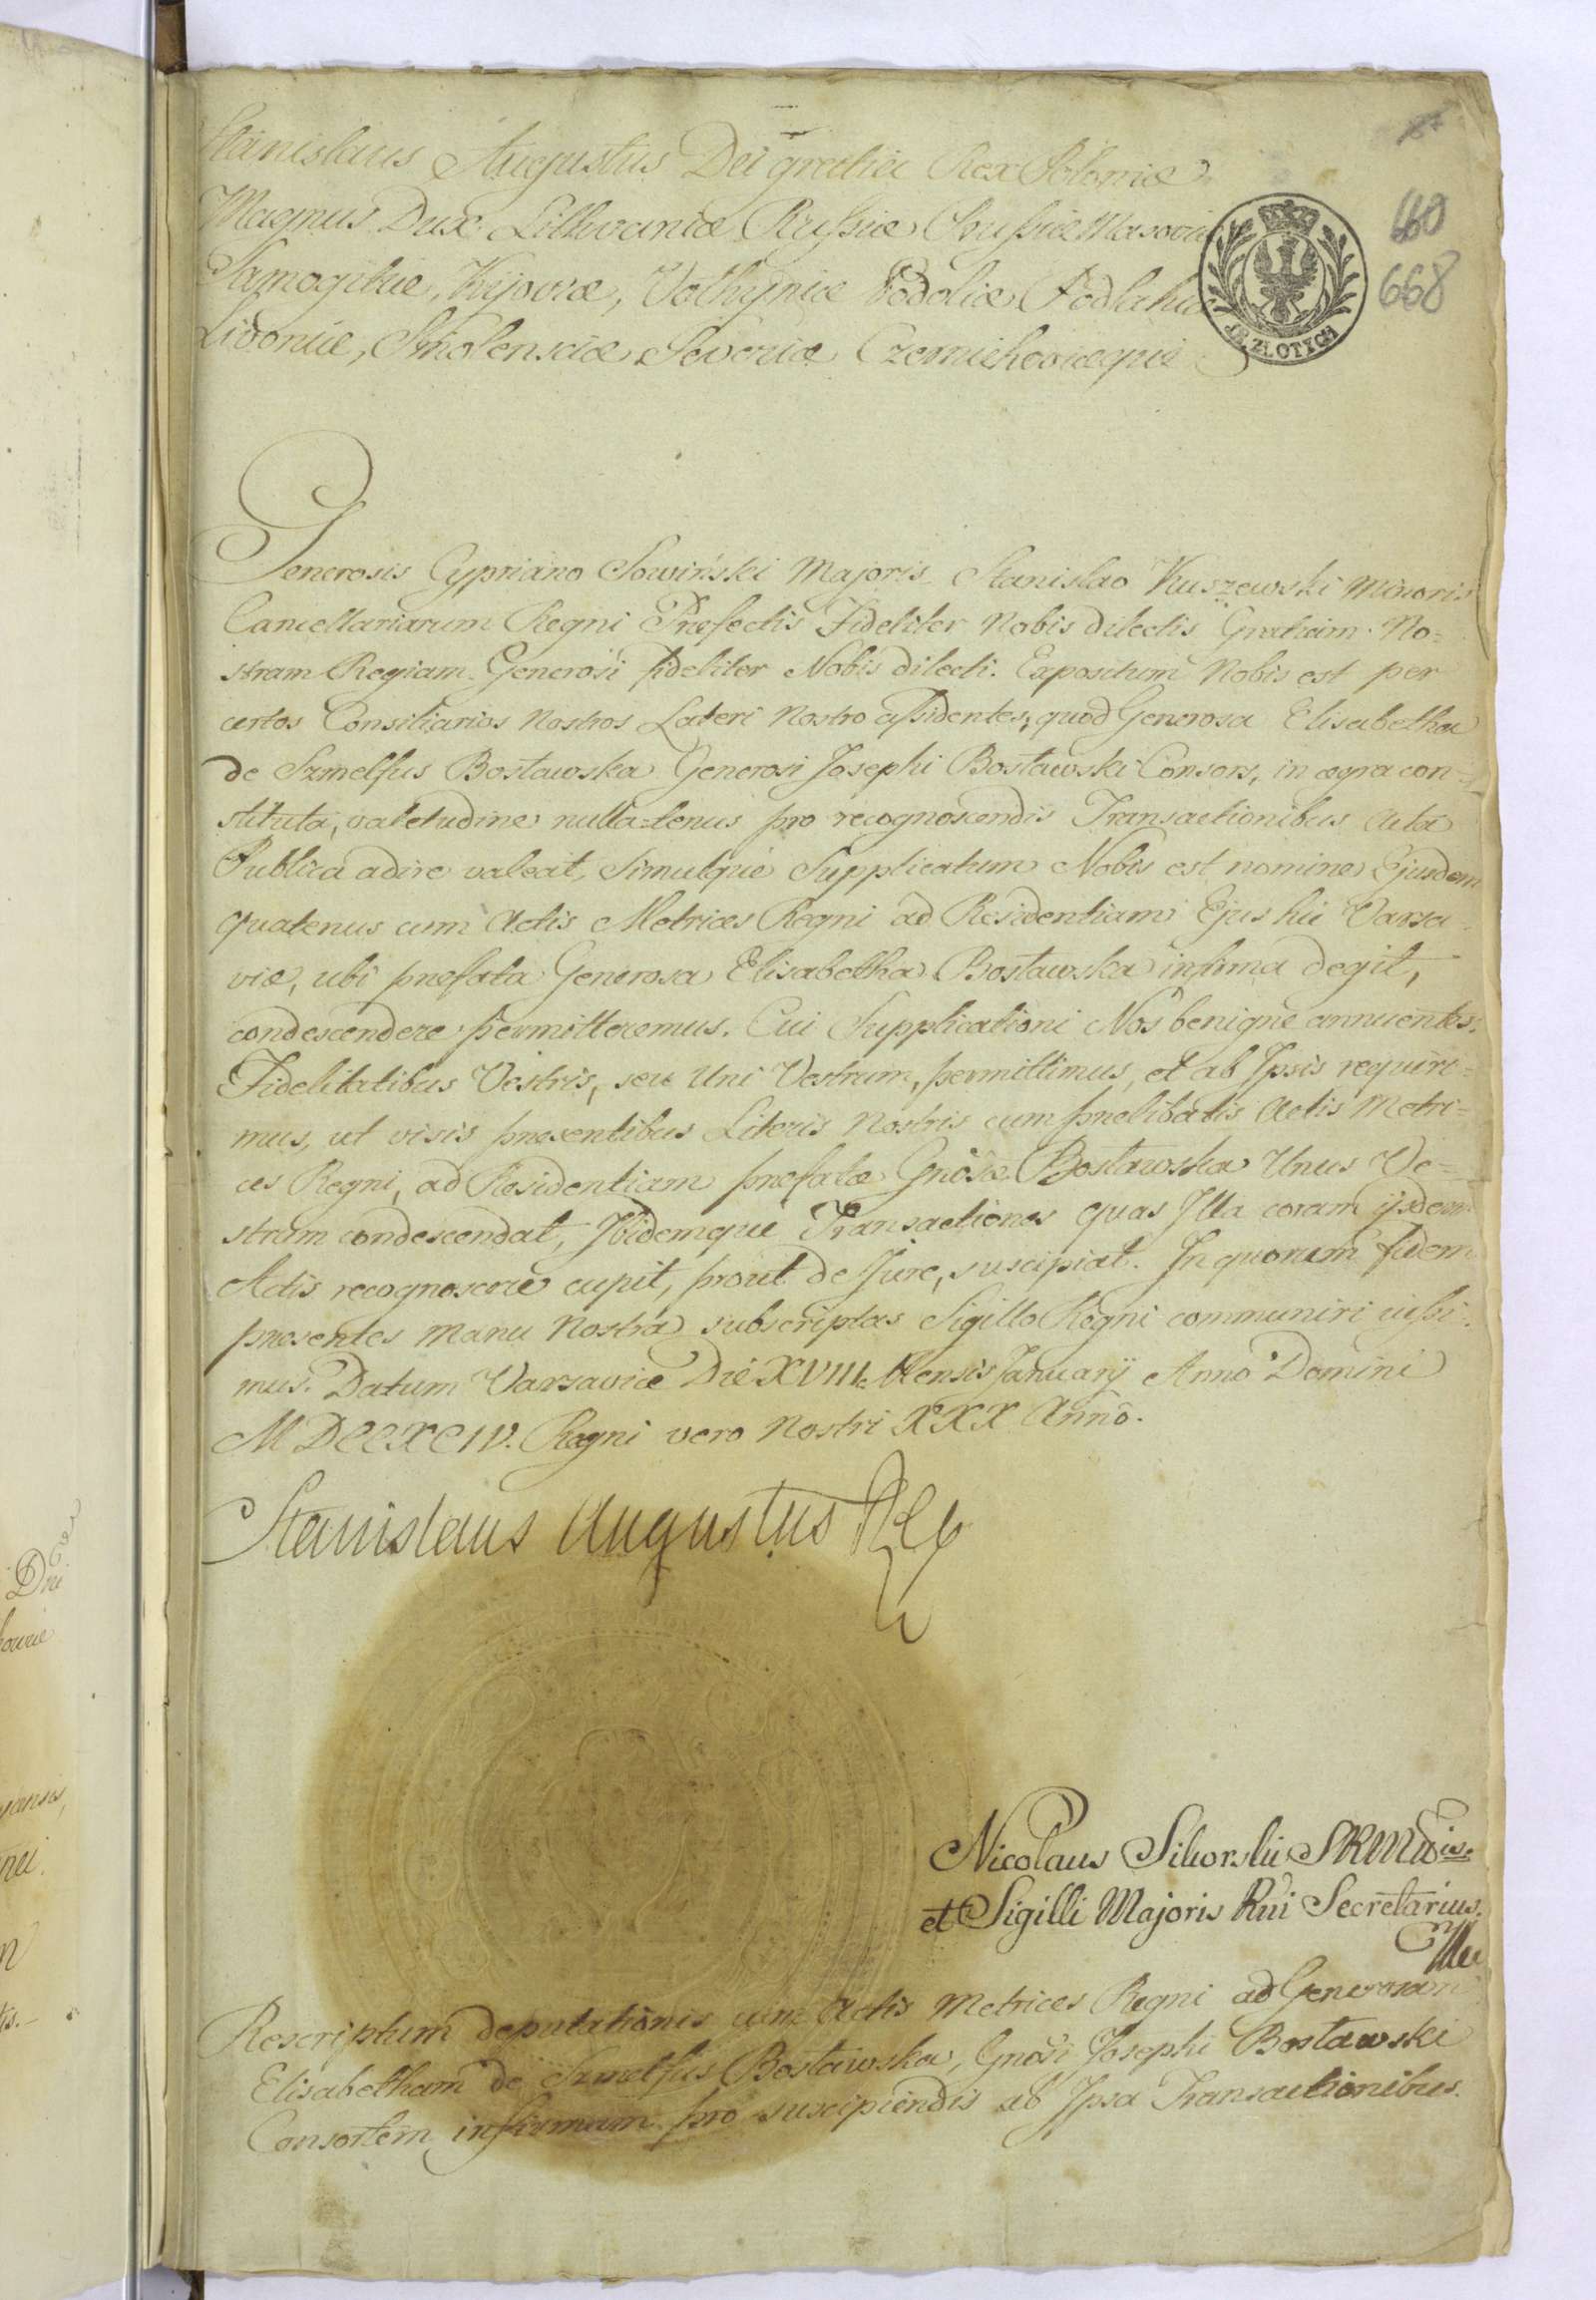 Stanislaus Augustus Dei gratia Rex Poloniæ
Magnus Dux Lithvaniæ Russiæ Prussiæ Masoviæ
Samogitiæ, Kijoviæ, Volhyniæ Podoliæ Podlahiæ
Livoniæ, Smolensciæ Severiæ Czerniehoviæque
12 ZŁOTYCH
660
668
Generosis Cypriano Sowiński Majoris Stanislao Kuszewski Minoris
Cancellariarum Regni Præfectis Fideliter Nobis dilectis Gratiam No=
stram Regiam. Generosi fideliter Nobis dilecti. Expositum Nobis est per
certos Consiliarios Nostros Lateri Nostro assidentes, quod Generosa Elisabetha
de Szmelfus Bosławska Generosi Josephi Bosławski Consors, in ægra con=
stituta, valetudine nulla=tenus pro recognoscendis Transactionibus Acta
Publica adire valeat, Simulque Supplicatum Nobis est nomine Ejusdem
quatenus cum Actis Metrices Regni ad Residentiam Ejus hic Varsa
viæ, ubi præfata Generosa Elisabetha Bosławska infirma degit,
condescendere permitteremus. Cui Supplicationi Nos benigne annuentes.
Fidelitatibus Vestris, seu Uni Vestrum, permittimus, et ab Ipsis requiri=
mus, ut visis præsentibus Literis Nostris cum prælibatis Actis Metri=
ces Regni, ad Residentiam præfatæ Gnosæ Bosławska Unus Ve=
strum condescendat, Ibidemque Transactiones quas Illa coram ijsdem
Actis recognoscere cupit, prout de Jure, suscipiat. In quorum fidem
præsentes Manu Nostra subscriptas Sigillo Regni communiri jussi=
mus. Datum Varsaviæ Die XVIII. Mensis Januarij Anno Domini
MDCCXCIV. Regni vero Nostri XXX Anno.
Stanislaus Augustus Rex
Nicolaus Sikorski SRMtis.
et Sigilli Majoris Rni Secretarius.
Rescriptum deputationis cum Actis Metrices Regni ad Generosam
Elisabetham de Szmelfus Bosławska, Gnosi Josephi Bosławski
Consortem infirmam pro suscipiendis ab Ipsa Transactionibus.